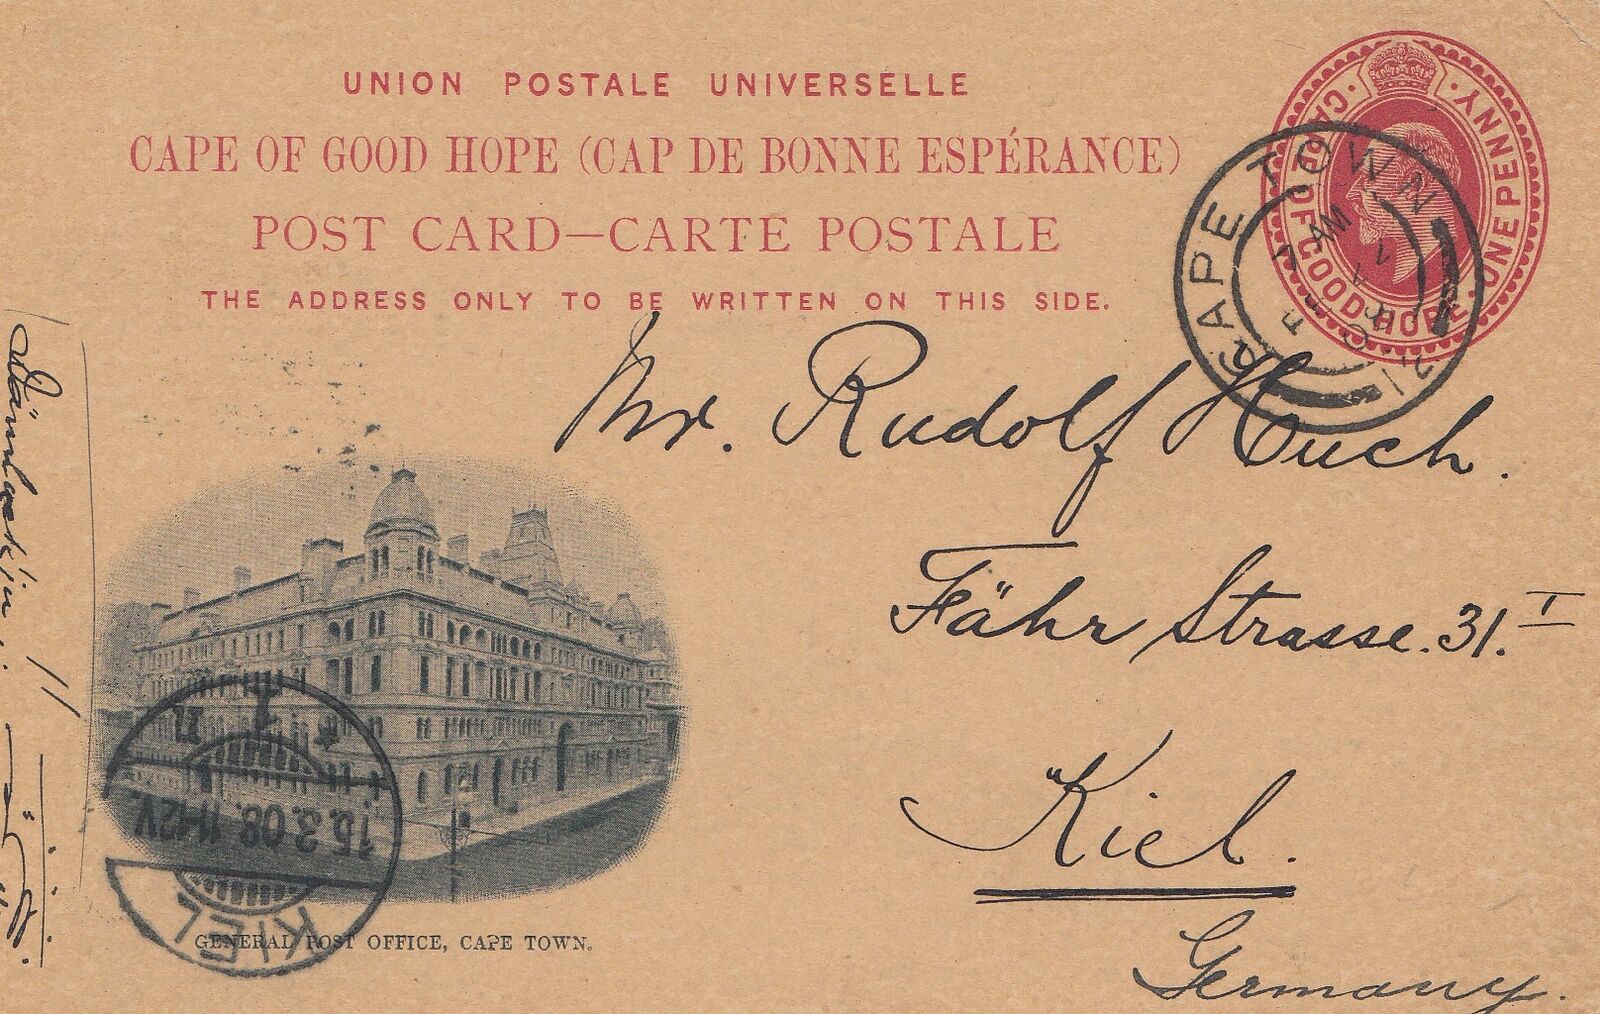 UNION POSTALE UNIVERSELLE
CAPE OF GOOD HOPE (CAP DE BONNE ESPÉRANCE)
POST CARD—CARTE POSTALE
THE ADDRESS ONLY TO BE WRITTEN ON THIS SIDE.
CAPE OF GOOD HOPE. ONE PENNY.
CAPE TOWN
Mr. Rudolf Huch.
Fähr Strasse. 31. I
Kiel.
Germany.
15.3.08. 11-12V.
KIEL
GENERAL POST OFFICE, CAPE TOWN.